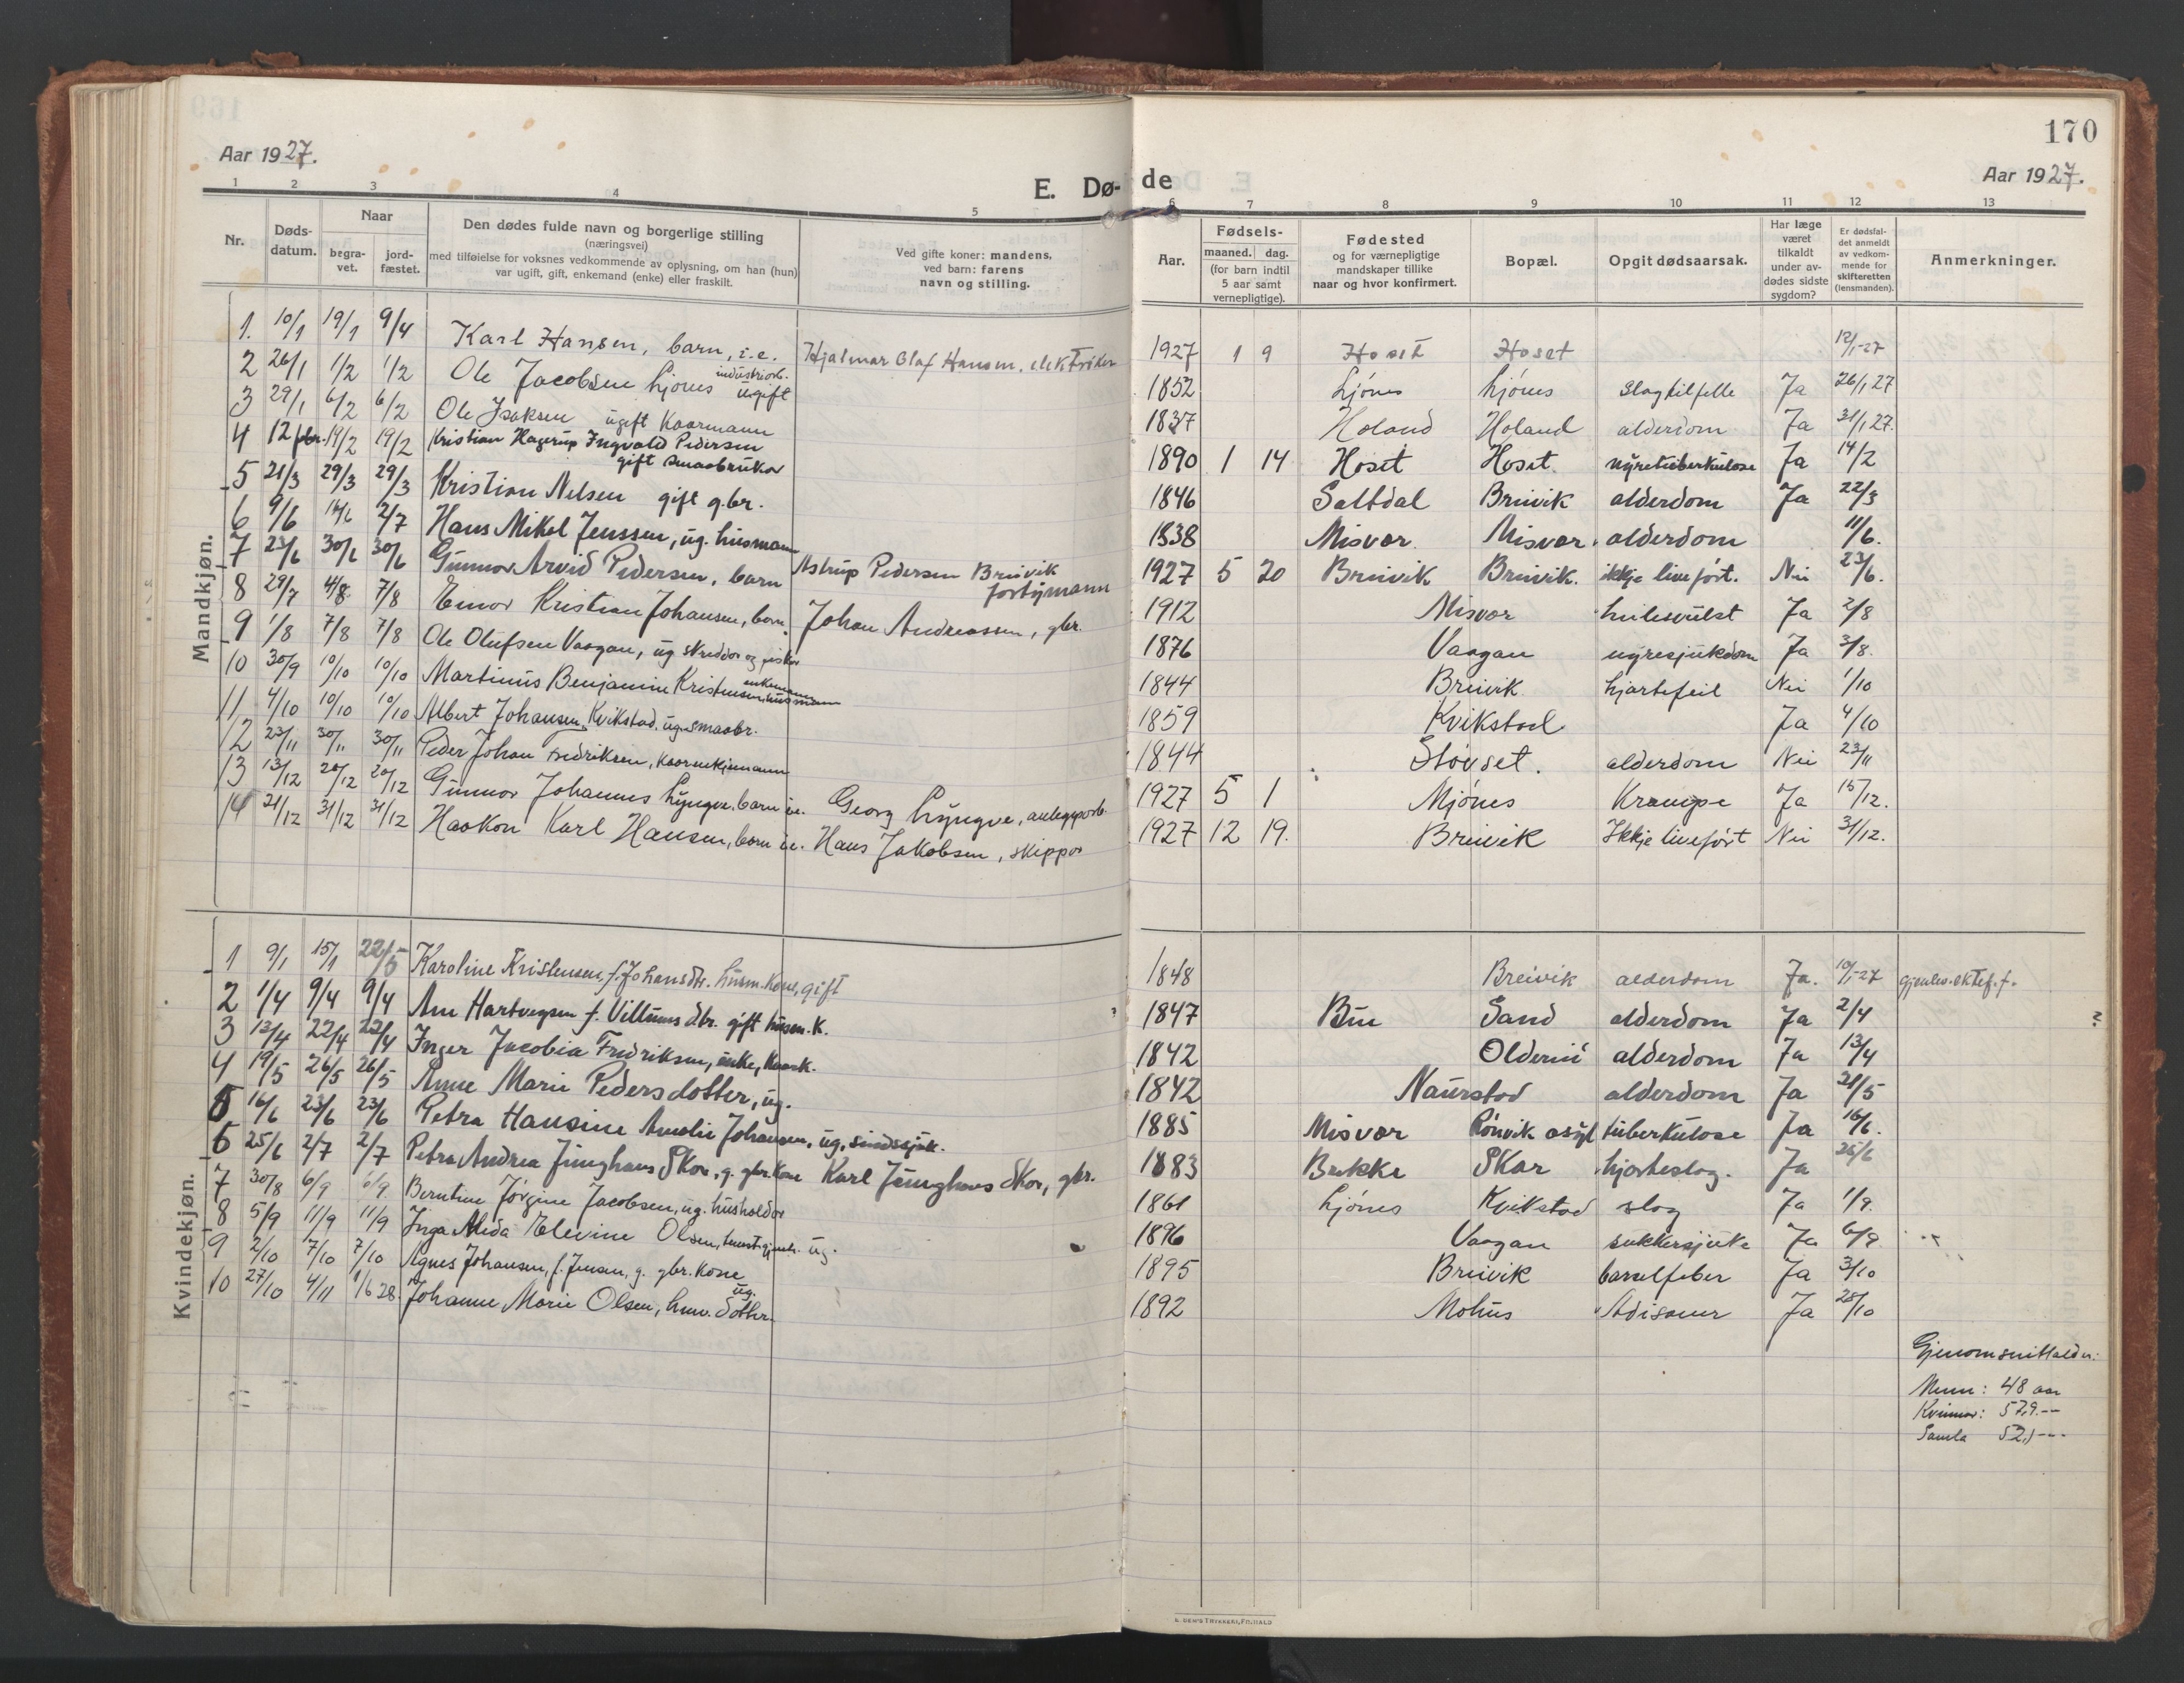 170
Aar 1927.
Aar 1927.
E. Dø- de
1 2 3 4 5 6 7 8 9 10 11 12 13
Nr.
Døds-
datum.
Naar
begra-
vet.
jord-
fæstet.
Den dødes fulde navn og borgerlige stilling
(næringsvei)
med tilføielse for voksnes vedkommende av oplysning, om han (hun)
var ugift, gift, enkemand (enke) eller fraskilt.
Ved gifte koner: mandens,
ved barn: farens
navn og stilling.
Aar.
Fødsels-
maaned. dag.
(for barn indtil
5 aar samt
vernepligtige).
Fødested
og for værnepligtige
mandskaper tillike
naar og hvor konfirmert.
Bopæl.
Opgit dødsaarsak.
Har læge
været
tilkaldt
under av-
dødes sidste
sygdom?
Er dødsfal-
det anmeldt
av vedkom-
mende for
skifteretten
(lensmanden).
Anmerkninger.
Mandkjøn.
1. 10/1 19/1 9/4 Karl Hansen, barn, i.e. Hjalmar Olaf Hansen, elektriker 1927 1 9 Hoset Hoset 12/1-27
2 26/1 1/2 1/2 Ole Jacobsen Ljønes industriarb. ugift 1852 Ljønes Ljønes slagtilfelle Ja 26/1 27
3 29/1 6/2 6/2 Ole Isaksen ugift Kaarmann 1837 Holand Holand alderdom Ja 31/1 27.
4 12 febr. 19/2 19/2 Kristian Hagerup Ingvald Pedersen
gift smaabrukar 1890 1 14 Hoset Hoset. nyretuberkulose Ja 14/2
5 21/3 29/3 29/3 Kristian Nilsen gift g.br. 1846 Saltdal Breivik alderdom Ja 22/3
6 9/6 14/6 2/7 Hans Mikal Jenssen, ug. husmann 1838 Misvær Misvær alderdom 11/6.
7 23/6 30/6 30/6 Gunnar Arvid Pedersen, barn Astrup Pedersen Breivik
forbymann 1927 5 20 Breivik Breivik. ikkje liveført. Nei 23/6.
8 29/7 4/8 7/8 Einar Kristian Johansen, barn. Johan Andreassen, gbr. 1912 Misvær hulesvulst Ja 2/8
9 1/8 7/8 7/8 Ole Olufsen Vaagan, ug. skreddar og fiskar 1876 Vaagan nyresjukdom Ja 3/8.
10 30/9 10/10 10/10 Martinus Benjamin Kristensen, enkemann husmann 1844 Breivik hjartefeil Nei 1/10
11 4/10 10/10 10/10 Albert Johansen, Kvikstad, ug. smaabr. 1859 Kvikstad Ja 4/10
12 23/11 30/11 30/11 Peder Johan Fredriksen, kaarenkjemann 1844 Støvset. alderdom Nei 23/11
13 13/12 20/12 20/12 Gunnar Johannes Lyngve, barn i.e. Georg Lyngve, anleggsarb. 1927 5 1 Mjønes Krampe Ja 15/12.
14 21/12 31/12 31/12 Haakon Karl Hansen, barn i.e. Hans Jakobsen, skippar 1927 12 19. Breivik Ikkje liveført Nei 31/12.
Kvindekjøn.
1 9/1 15/1 22/5 Karoline Kristensen, f. Johansdtr. husm. kone, gift 1848 Breivik alderdom Ja. 10/1-27 gjenlev. ektef. f.
2 1/4 9/4 9/4 Ane Hartvigsen f. Villums dtr. gift husm. k. 1847 Bue Sand alderdom Ja 2/4
3 12/4 22/4 22/4 Inger Jacobia Fredriksen, enke, kaark. 1842 Oldereid alderdom Ja 13/4
4 19/5 26/5 26/5 Anne Marie Pedersdotter, ug. 1842 Naurstad alderdom Ja 21/5
5 16/6 23/6 23/6 Petra Hansine Amalie Johansen, ug, sindssjuk. 1885 Misvær Rønvik asyl tuberkulose Ja 16/6.
6 25/6 2/7 2/7 Petra Andrea Junghans Skar, g. gbr. kone Karl Junghans Skar, gbr. 1883 Bakke Skar hjarteslag. Ja 25/6
7 30/8 6/9 6/9 Berntine Jørgine Jacobsen, ug. husholdar 1861 Ljønes Kvikstad slag Ja 1/9.
8 5/9 11/9 11/9 Inga Alida Elevine Olsen, tenestgjente. ug. 1896 Vaagan sukkersjuke Ja 6/9
9 2/10 7/10 7/10 Agnes Johansen, f. Jensen, g. gbr. kone 1895 Breivik barselfeber Ja 3/10
10 27/10 4/11 1/6 28. Johanne Marie Olsen, husm. dotter ug. 1892 Mohus Adisamer Ja 28/10
Gjenomsnittalder:
Menn: 48 aar
Kvinnor: 57,9.--
Samla 52,1---